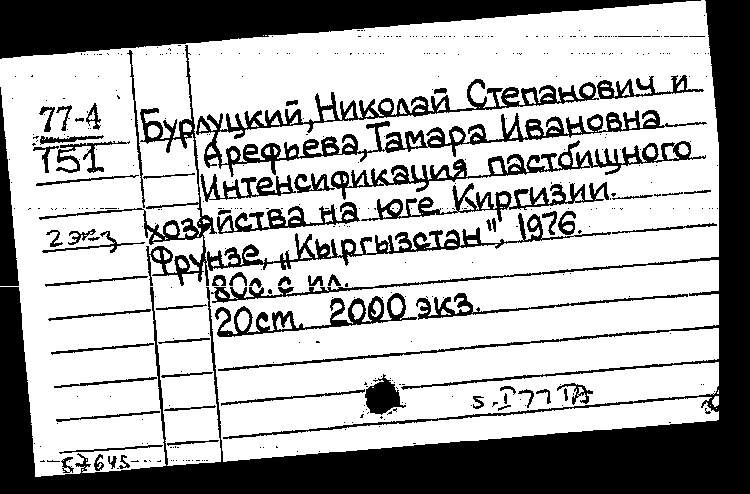 77-4
151
2 экз
Бурлуцкий, Николай Степанович и
Арефьева, Тамара Ивановна
Интенсификация пастбищного
хозяйства на юге Киргизии.
Фрунзе, „Кыргызстан", 1976.
80с. с ил.
20см. 2000 экз.
57645